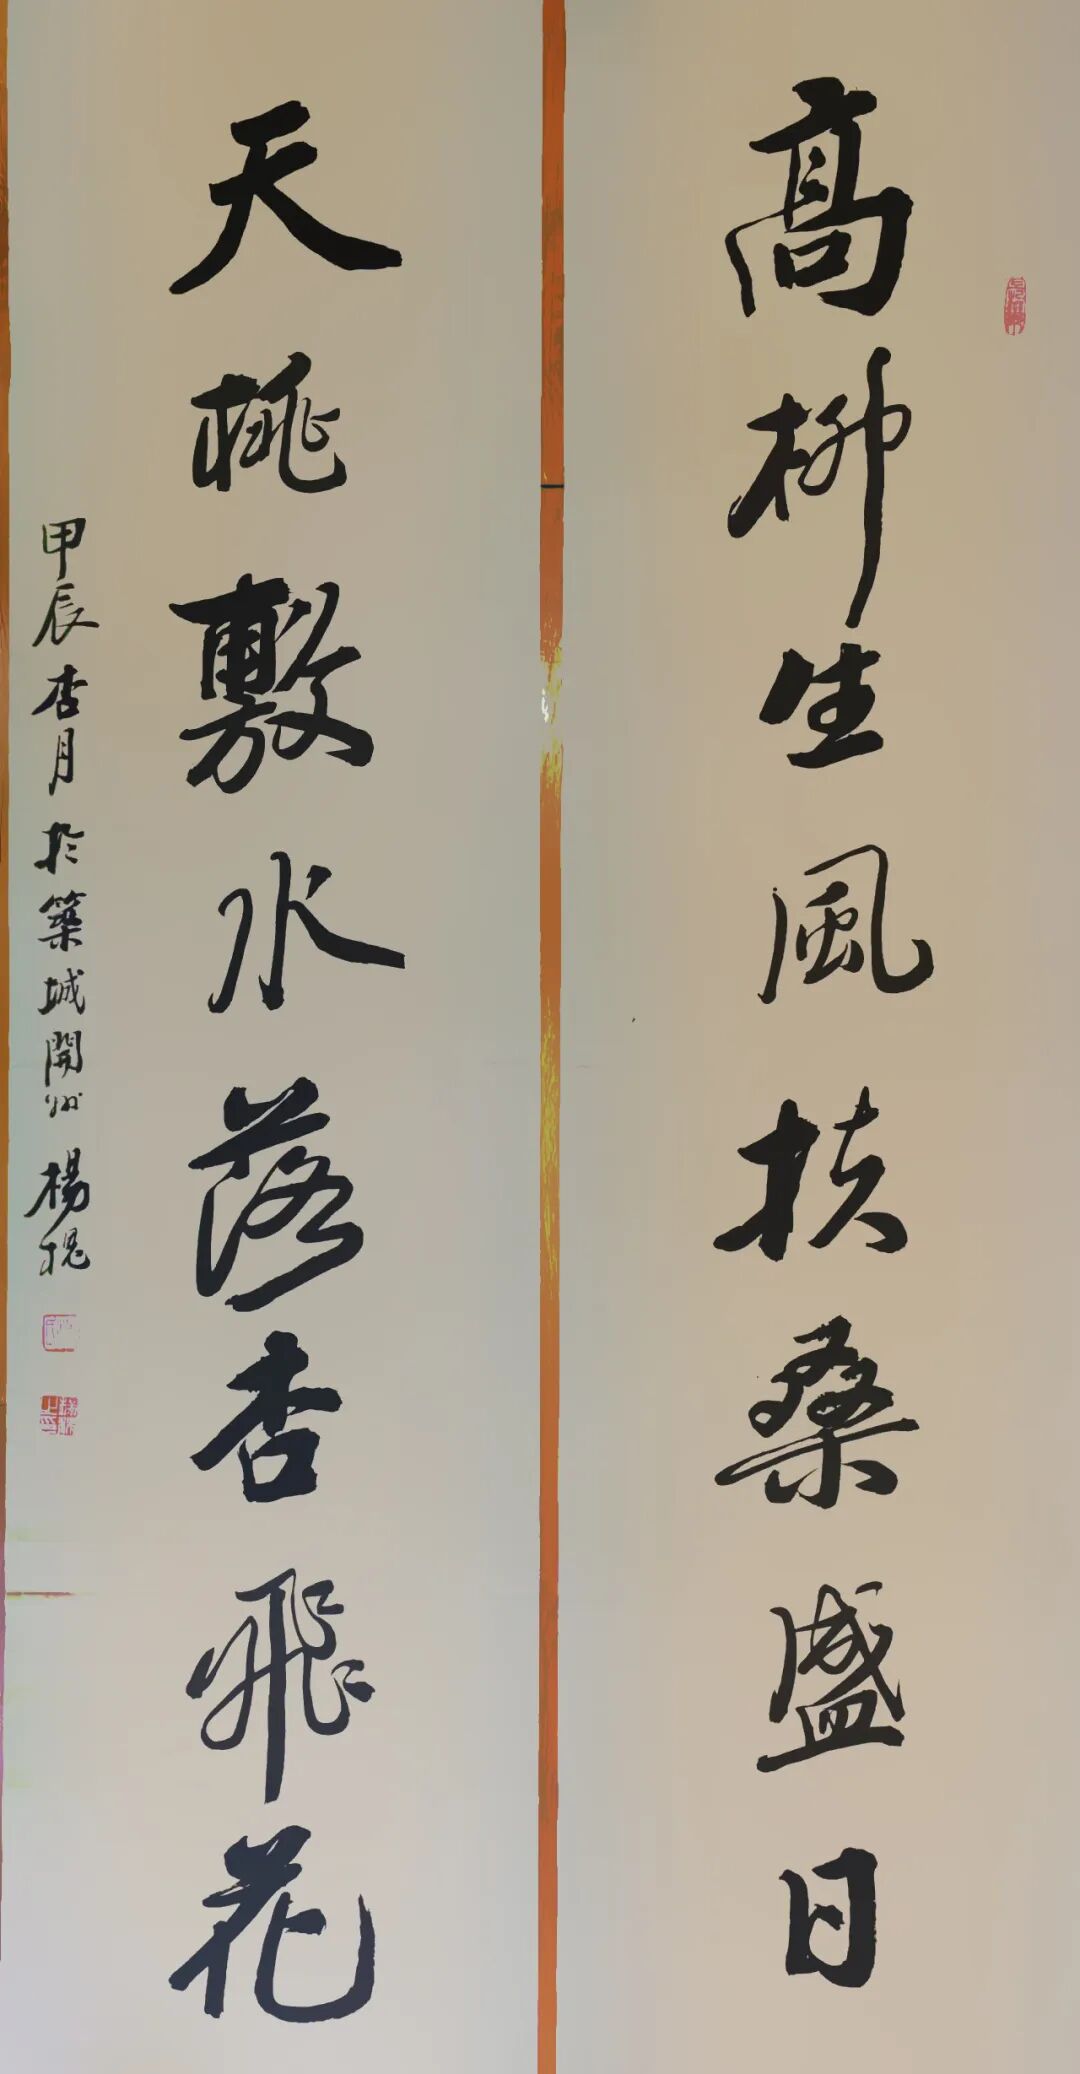 高柳生風扶桑盛日
天桃敷水落杏飛花
甲辰杏月於築城開州楊槐